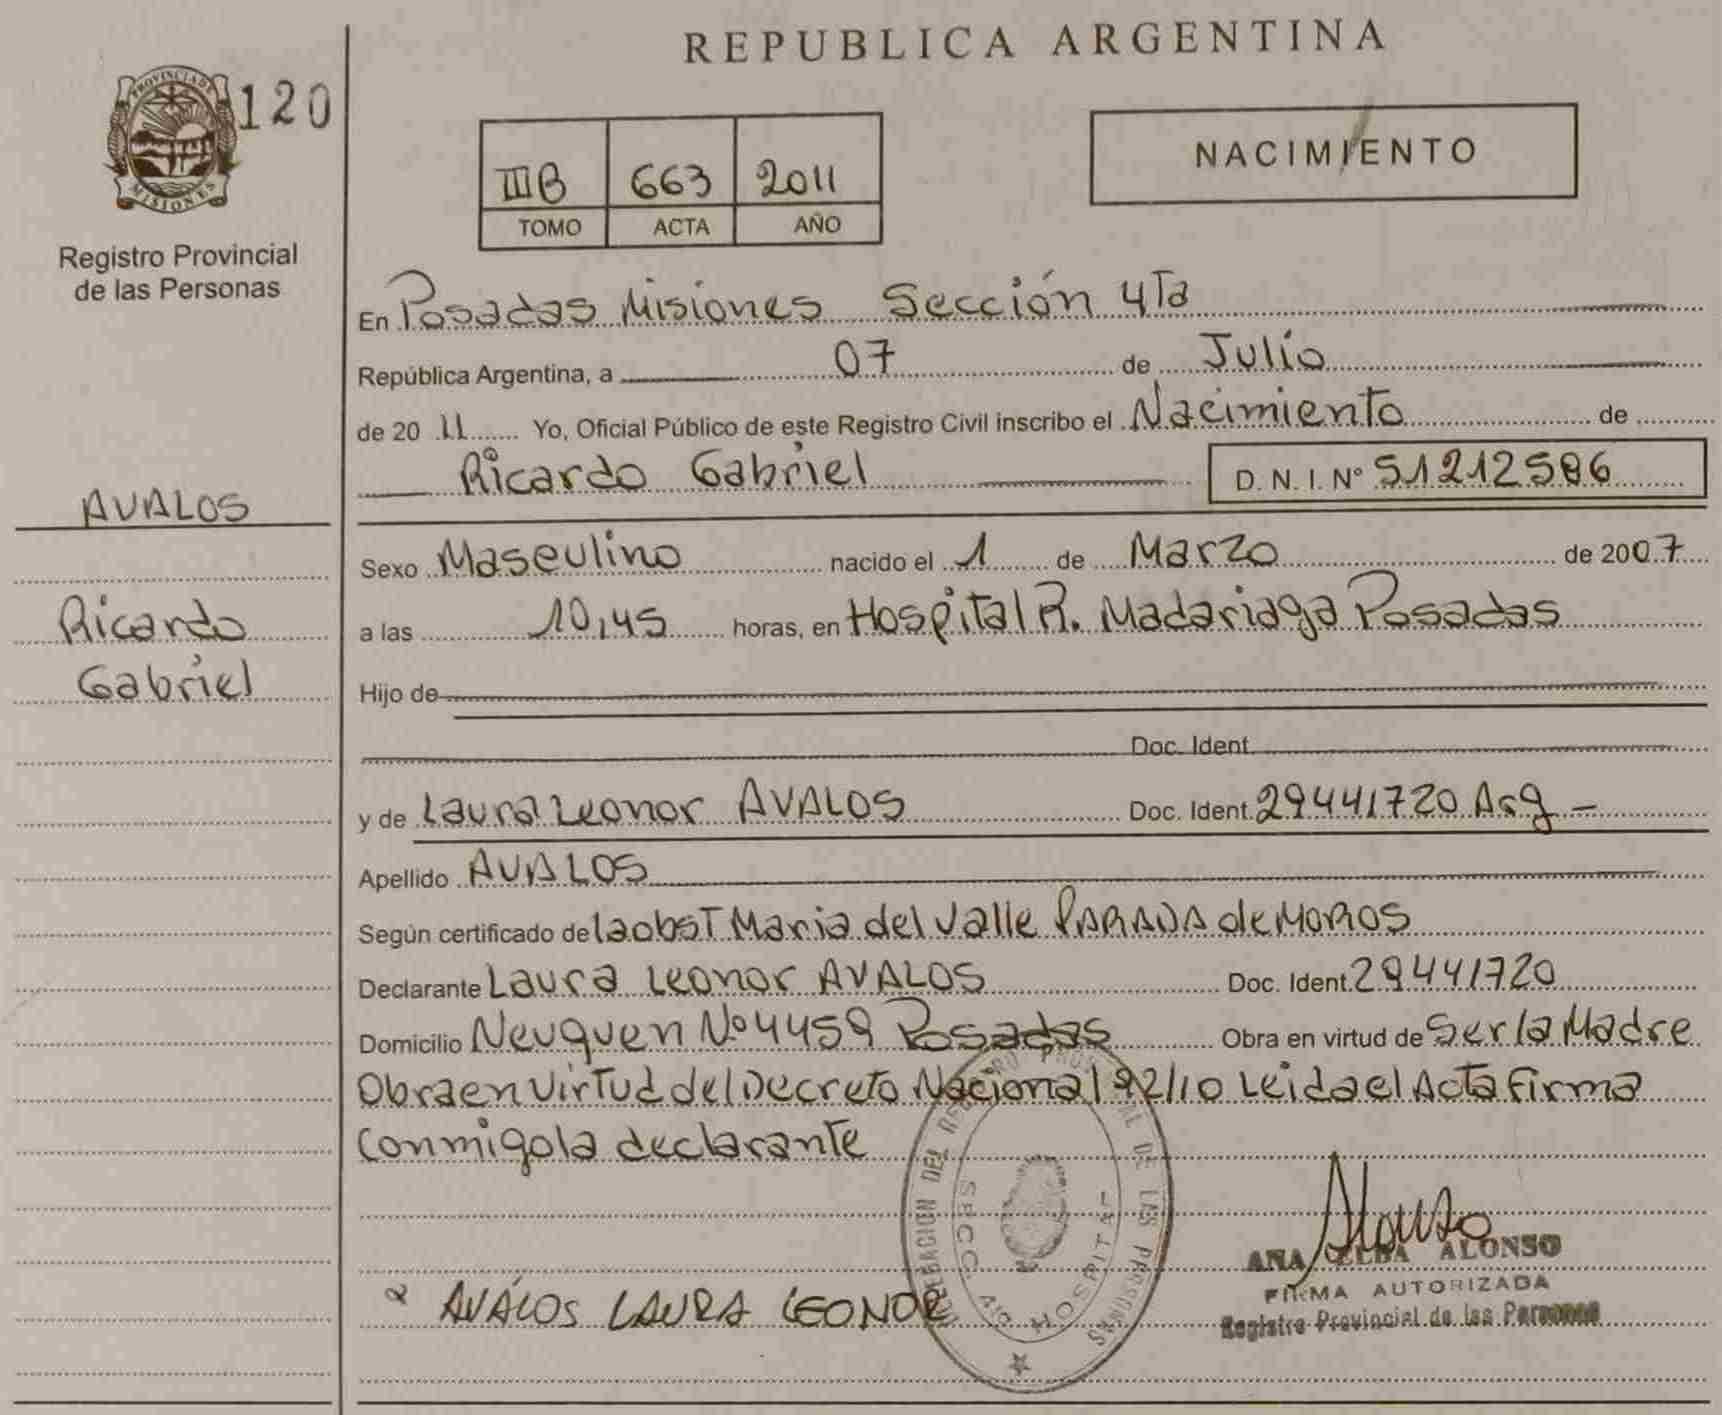 REPUBLICA ARGENTINA
PROVINCIA DE
MISIONES
120
IIIB 663 2011
TOMO ACTA AÑO
NACIMIENTO
Registro Provincial
de las Personas
AVALOS
Ricardo
Gabriel
En Posadas Misiones Sección 4Ta
República Argentina, a 07 de Julio
de 20 11 Yo, Oficial Público de este Registro Civil inscribo el Nacimiento de
Ricardo Gabriel D. N. I. Nº 51212586
Sexo Masculino nacido el 1 de Marzo de 2007
a las 10,45 horas, en Hospital R. Madariaga Posadas
Hijo de
Doc. Ident.
y de Laura Leonor AVALOS Doc. Ident. 29441720 Arg -
Apellido AVALOS
Según certificado de la obsT Maria del Valle PARADA de MOROS
Declarante Laura Leonor AVALOS Doc. Ident. 29441720
Domicilio Neuquen Nº 4459 Posadas Obra en virtud de Ser la Madre
Obra en VirTud del Decreto Nacional 92/10 Leida el Acta Firma
Conmigo la declarante
AVALOS LAURA LEONOR
DELEGACION DEL REGISTRO PROVINCIAL DE LAS PERSONAS
SECC. HOSPITAL
Alonso
ANA CELBA ALONSO
FIRMA AUTORIZADA
Registro Provincial de las Personas